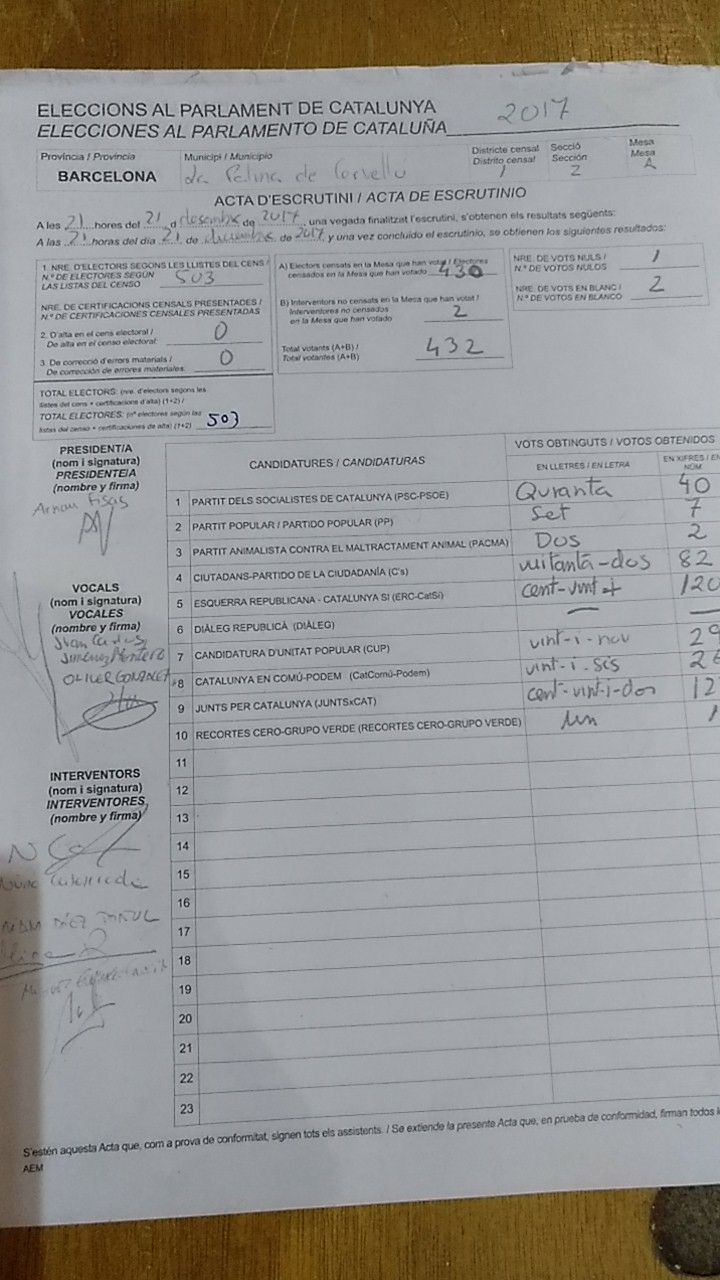 ELECCIONS AL PARLAMENT DE CATALUNYA
ELECCIONES AL PARLAMENTO DE CATALUÑA 2017
Provincia / Provincia Municipi / Municipio Districte censal Secció Mesa
Distrito censal Sección Mesa
BARCELONA La Palma de Cervelló 1 2 A
ACTA D'ESCRUTINI / ACTA DE ESCRUTINIO
A les 21 hores del 21 d desembre de 2017, una vegada finalitzat l'escrutini, s'obtenen els resultats següents:
A las 21 horas del día 21 de diciembre de 2017, y una vez concluido el escrutinio, se obtienen los siguientes resultados:
1. NRE. D'ELECTORS SEGONS LES LLISTES DEL CENS /
N.º DE ELECTORES SEGÚN
LAS LISTAS DEL CENSO 503
NRE. DE CERTIFICACIONS CENSALS PRESENTADES /
N.º DE CERTIFICACIONES CENSALES PRESENTADAS
2. D'alta en el cens electoral /
De alta en el censo electoral: 0
3. De correcció d'errors materials /
De corrección de errores materiales: 0
TOTAL ELECTORS: (nre. d'electors segons les
llistes del cens + certificacions d'alta) (1+2) /
TOTAL ELECTORES: (nº electores según las
listas del censo + certificaciones de alta) (1+2) 503
A) Electors censats en la Mesa que han votat / Electores
censados en la Mesa que han votado 430
B) Interventors no censats en la Mesa que han votat /
Interventores no censados
en la Mesa que han votado 2
Total votants (A+B) /
Total votantes (A+B) 432
NRE. DE VOTS NULS /
N.º DE VOTOS NULOS 1
NRE. DE VOTS EN BLANC /
N.º DE VOTOS EN BLANCO 2
PRESIDENT/A
(nom i signatura)
PRESIDENTE/A
(nombre y firma)
Arnau Fisas
VOCALS
(nom i signatura)
VOCALES
(nombre y firma)
Juan Carlos
Jiménez Montero
OLIVER GONZALEZ
INTERVENTORS
(nom i signatura)
INTERVENTORES
(nombre y firma)
CANDIDATURES / CANDIDATURAS VOTS OBTINGUTS / VOTOS OBTENIDOS
EN LLETRES / EN LETRA EN XIFRES / EN
NÚM.
1 PARTIT DELS SOCIALISTES DE CATALUNYA (PSC-PSOE) Quranta 40
2 PARTIT POPULAR / PARTIDO POPULAR (PP) Set 7
3 PARTIT ANIMALISTA CONTRA EL MALTRACTAMENT ANIMAL (PACMA) Dos 2
4 CIUTADANS-PARTIDO DE LA CIUDADANÍA (C's) vuitanta-dos 82
5 ESQUERRA REPUBLICANA - CATALUNYA SI (ERC-CatSí) cent-vint 120
6 DIÀLEG REPUBLICÀ (DIÀLEG) — —
7 CANDIDATURA D'UNITAT POPULAR (CUP) vint-i-nou 29
8 CATALUNYA EN COMÚ-PODEM (CatComú-Podem) vint-i-sis 26
9 JUNTS PER CATALUNYA (JUNTSxCAT) cent-vint-i-dos 12
10 RECORTES CERO-GRUPO VERDE (RECORTES CERO-GRUPO VERDE) un 1
11
12
13
14
15
16
17
18
19
20
21
22
23
S'estén aquesta Acta que, com a prova de conformitat, signen tots els assistents. / Se extiende la presente Acta que, en prueba de conformidad, firman todos l
AEM